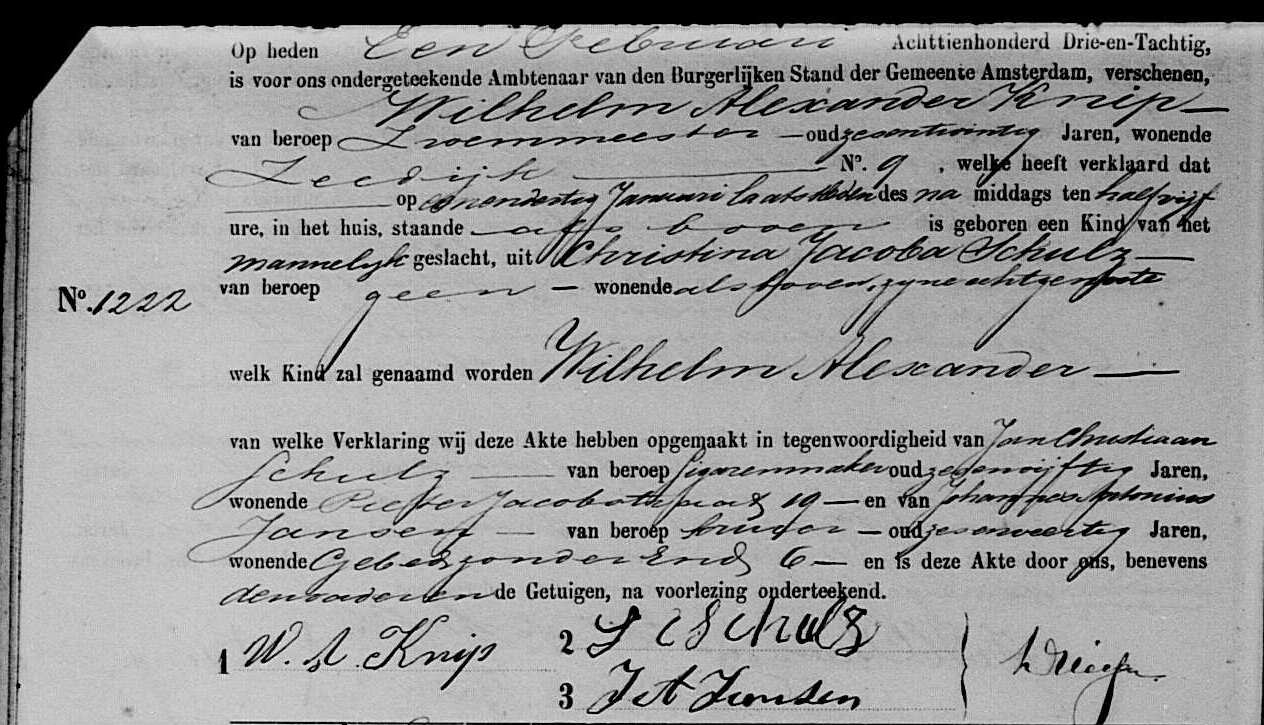 Op heden Een Februari Achttienhonderd Drie-en-Tachtig,
is voor ons ondergeteekende Ambtenaar van den Burgerlijken Stand der Gemeente Amsterdam, verschenen,
Wilhelm Alexander Knip
van beroep Zwemmeester oud zesentwintig Jaren, wonende
Zeedijk No. 9, welke heeft verklaard dat
op eenendertig Januari laatstleden des na middags ten half vijf
ure, in het huis, staande als boven is geboren een Kind van het
mannelijk geslacht, uit Christina Jacoba Schulz
No. 1222
van beroep geen — wonende als boven, zyne echtgenoote
welk Kind zal genaamd worden Wilhelm Alexander
van welke Verklaring wij deze Akte hebben opgemaakt in tegenwoordigheid van Jan Christiaan
Schulz van beroep sigarenmaker oud Jaren,
wonende Pieter Jacobstraat 19 — en van Johannes Antonius
Jansen van beroep — oud zesenveertig Jaren,
wonende Gebed zonder End 6 — en is deze Akte door ons, benevens
den vader en de Getuigen, na voorlezing onderteekend.
1 W. A. Knip 2 Schulz
3 J A Jansen